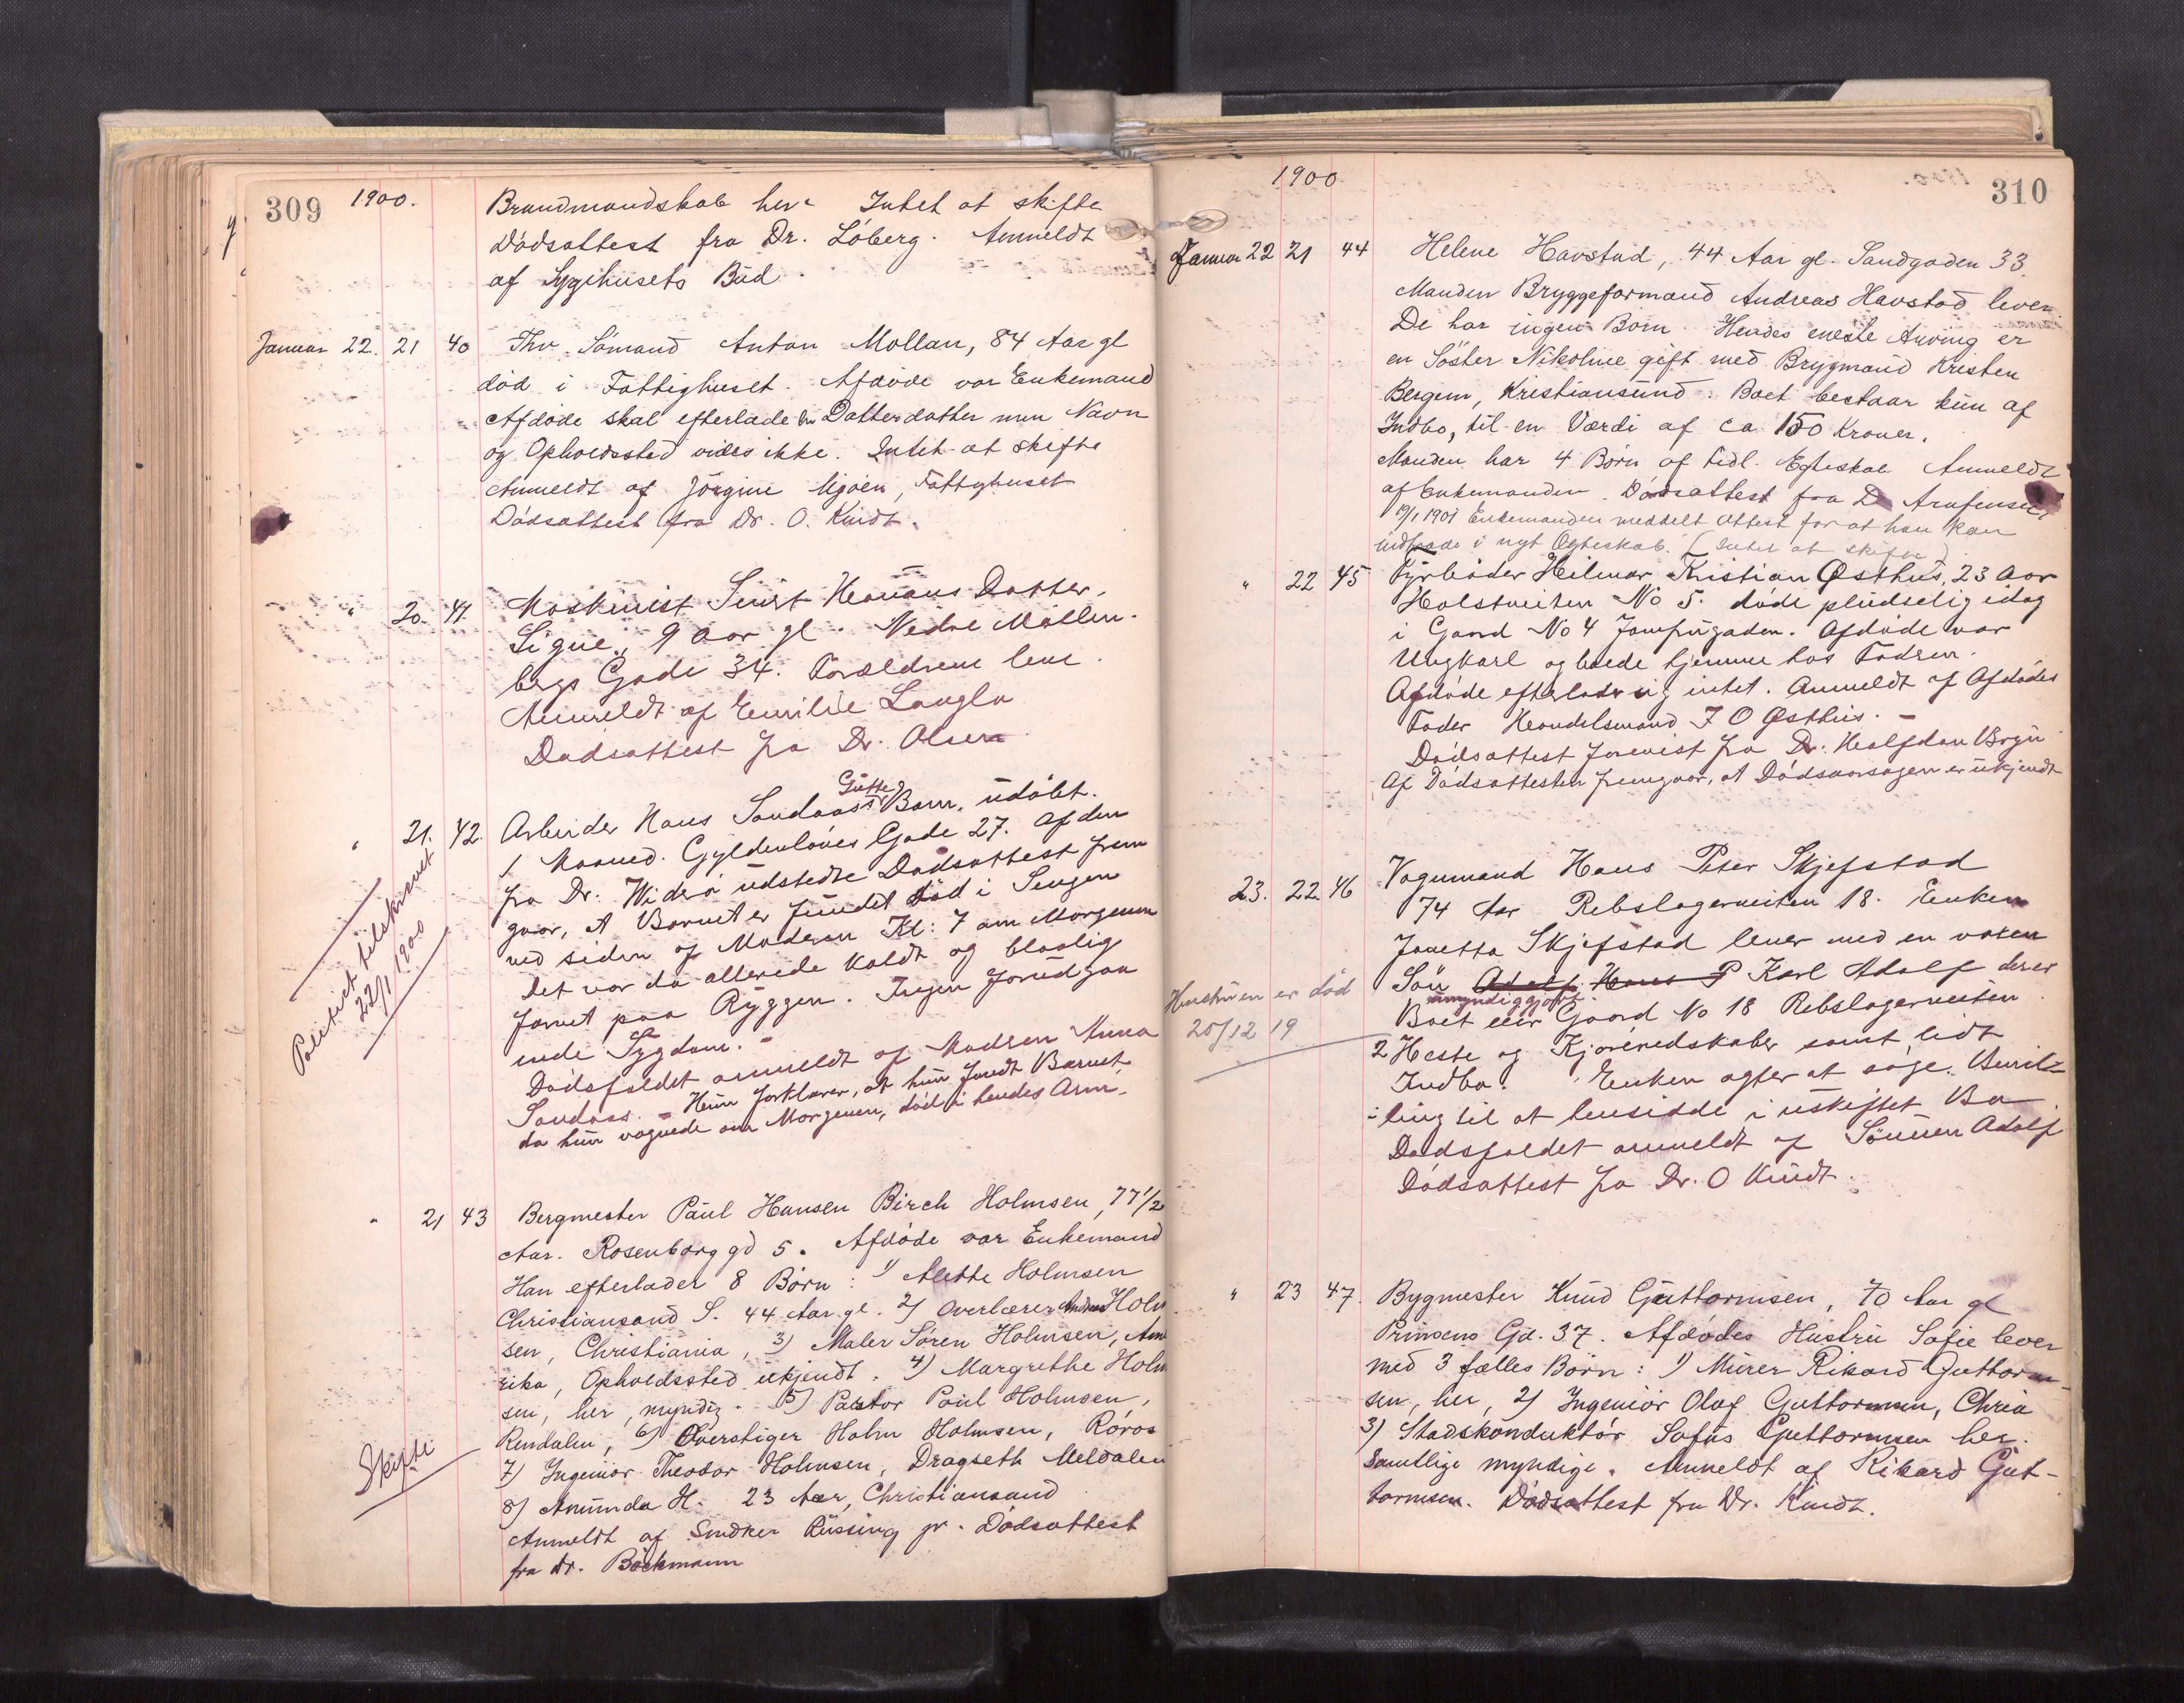 309 1900.
Brandmandskab her. Intet at skifte
Dödsattest fra Dr. Löberg. Anmeldt
af Sygehusets Bud.
Januar 22. 21 40 Fhv. Sömand Anton Mollan, 84 Aar gl
död i Fattighuset. Afdöde var Enkemand
Afdöde skal efterlade en Datterdatter men Navn
og Opholdssted vides ikke. Intet at skifte
Anmeldt af Jörgine Mjoen, Fattighuset
Dödsattest fra Dr. O. Kindt.
" 20. 41. Maskinist Hanans Datter,
Signe, 9 Aar gl. Nedre Möllen-
bergs Gade 34. Forældrene leve.
Anmeldt af Emilie Langlo
Dödsattest fra Dr. Olsen
Gutte
" 21. 42. Arbeider Hans Sandaas's Barn, udöbt.
1 Maaned. Gyldenlöves Gade 27. Af den
fra Dr. Widerö udstedte Dödsattest frem
gaar, at Barnet er fundet död i Sengen
ved siden af Moderen Kl: 7 om Morgenen
Det var da allerede koldt og blaalig
farvet paa Ryggen. Ingen forudgaa
ende Sygdom. -
Dödsfaldet anmeldt af Madsen Anna
Sandaas. - Hun forklarer, at hun fandt Barnet
da hun vognede om Morgenen, död i hendes Arm.
Politiet tilskrevet
22/1 1900
" 21 43 Bergmester Paul Hansen Birch Holmsen, 77 1/2
Aar. Rosenborg gd 5. Afdöde var Enkemand
Han efterlader 8 Börn: 1) Alette Holmsen
Christiansand S. 44 Aar gl. 2) Overlærer Andreas Holm
sen, Christiania, 3) Maler Sören Holmsen, Ame
rika, Opholdssted ukjendt. 4) Margrethe Holm
sen, her, myndig. 5) Pastor Poul Holmsen,
Rendalen, 6) Overstiger Holm Holmsen, Röros
7) Ingeniör Theodor Holmsen, Dragseth Meldalen
8) Amunda H. 23 Aar, Christiansand
Anmeldt af Snedker Rüssing jr. Dödsattest
fra Dr. Böckmann
Skifte
1900. 310
Januar 22 21 44 Helene Havstad, 44 Aar gl. Sandgaden 33.
Manden Bryggeformand Andreas Havstad lever.
De har ingen Börn. Hendes eneste Arving er
en Söster Nikoline gift med Brygmand Kristen
Bergem, Kristiansund. Boet bestaar kun af
Indbo, til en Værdi af ca 150 Kroner.
Manden har 4 Börn af tidl. Egteskab Anmeldt
af Enkemanden. Dödsattest fra Dr
19/1 1901 Enkemanden meddelt Attest for at han kan
indtræde i nyt Ægteskab. (Intet at skifte)
" 22 45 Fyrböder Hilmar Kristian Østhus, 23 Aar
Holstveiten No 5. döde pludselig idag
i Gaard No 4 Jomfrugaden. Afdöde var
Ungkarl og boede hjemme hos Fadren.
Afdöde efterlader sig intet. Anmeldt af Afdödes
Fader Handelsmand J O Østhus. -
Dödsattest forevist fra Dr. Halfdan Bryn
Af Dödsattesten fremgaar, at Dödsaarsagen er ukjendt
23. 22 46 Vognmand Hans Peter Skjefstad
74 Aar Rebslagerveiten 18. Enken
Janetta Skjefstad lever med en voksen
Sön Adolf Hans P Karl Adolf der er
umyndiggjort.
Boet eier Gaard No 18 Rebslagerveiten
2 Heste og Kjöreredskaber samt lidt
Indbo. Enken agter at söge Bevil-
ling til at hensidde i uskiftet Bo
Dödsfaldet anmeldt af Sönnen Adolf
Dödsattest fra Dr. O Kindt.
Hustruen er död
20/12 19
" 23 47. Bygmester Knud Guttormsen, 70 Aar gl
Prinsens Gd. 37. Afdödes Hustru Sofie lever
med 3 fælles Börn: 1) Murer Rikard Guttorm-
sen, her, 2) Ingeniör Olaf Guttormsen, Chria
3) Stadskonduktör Sofus Guttormsen her.
Samtlige myndige. Anmeldt af Rikard Gut-
tormsen. Dödsattest fra Dr. Kindt.